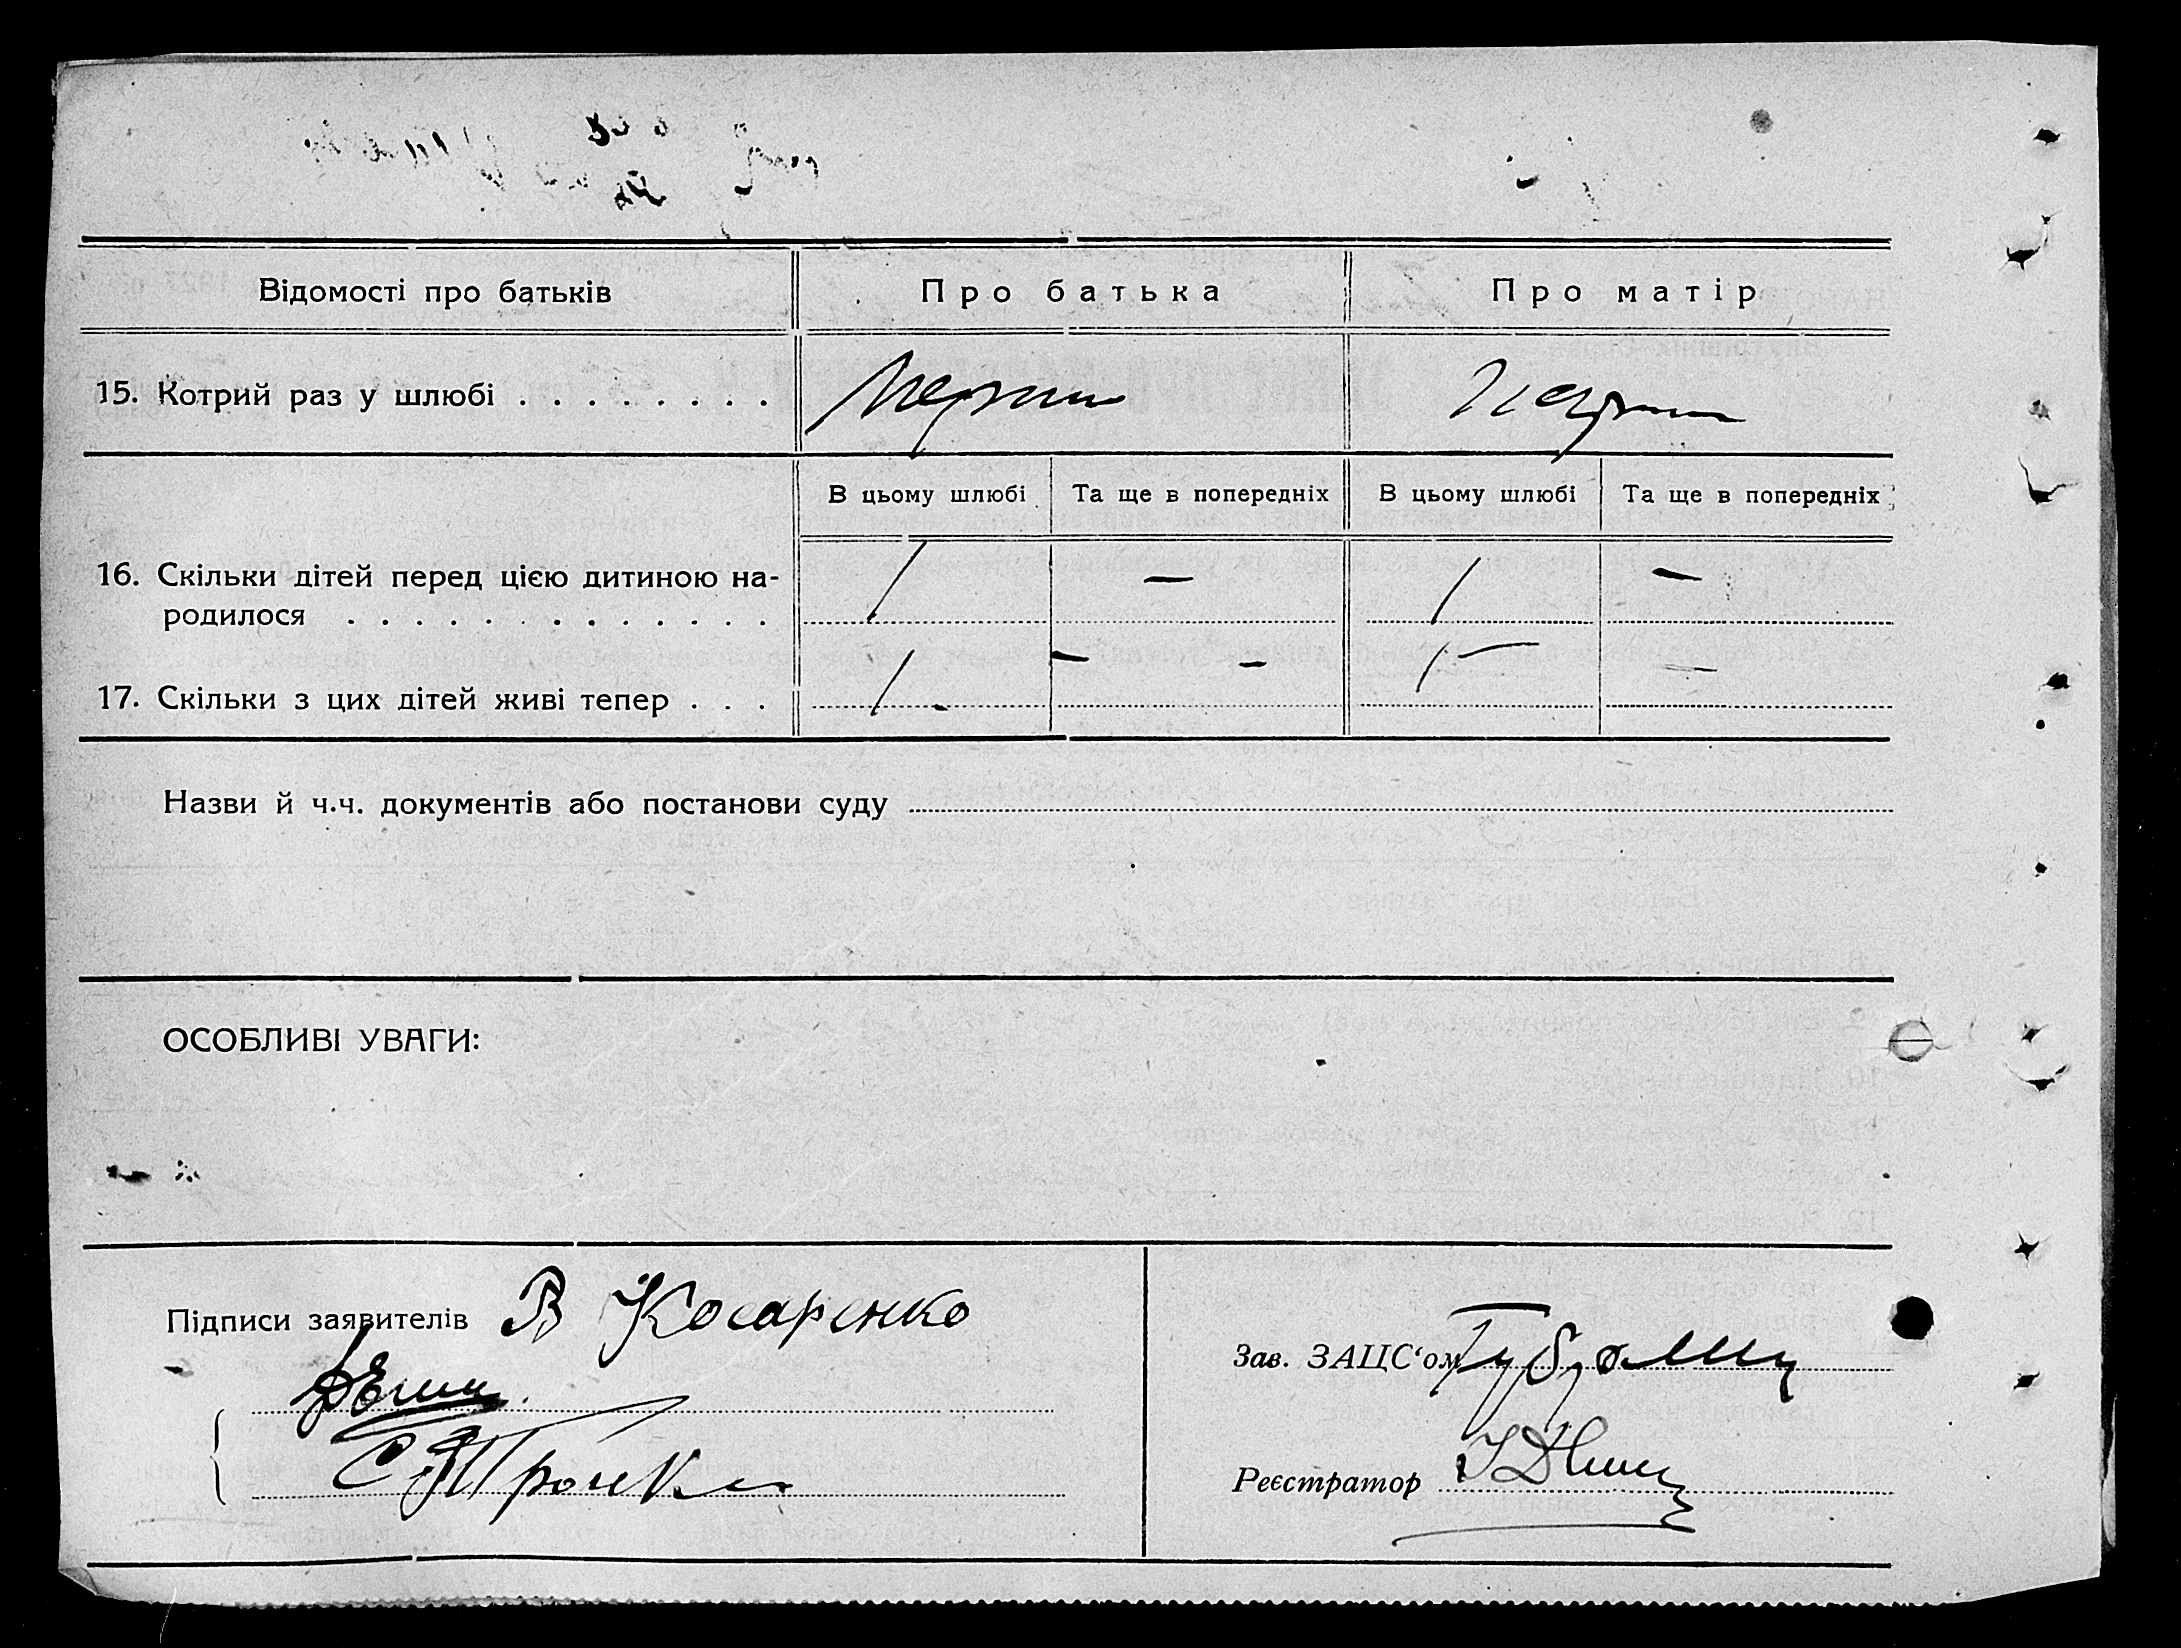 Відомості про батьків Про батька Про матір
15. Котрий раз у шлюбі . . . . . . . .
В цьому шлюбі Та ще в попередніх В цьому шлюбі Та ще в попередніх
16. Скільки дітей перед цією дитиною на- / — / —
родилося . . . . . . . . . . . . .
17. Скільки з цих дітей живі тепер . . . / — — / — —
Назви й ч.ч. документів або постанови суду
ОСОБЛИВІ УВАГИ:
Підписи заявителів В Косаренко
Зав. ЗАЦС‘ом
Реєстратор